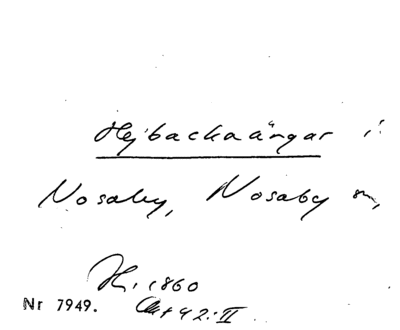 Hejbackaängar i
Nosaby, Nosaby sn,
H. 1860
Nr 7949. 42:II